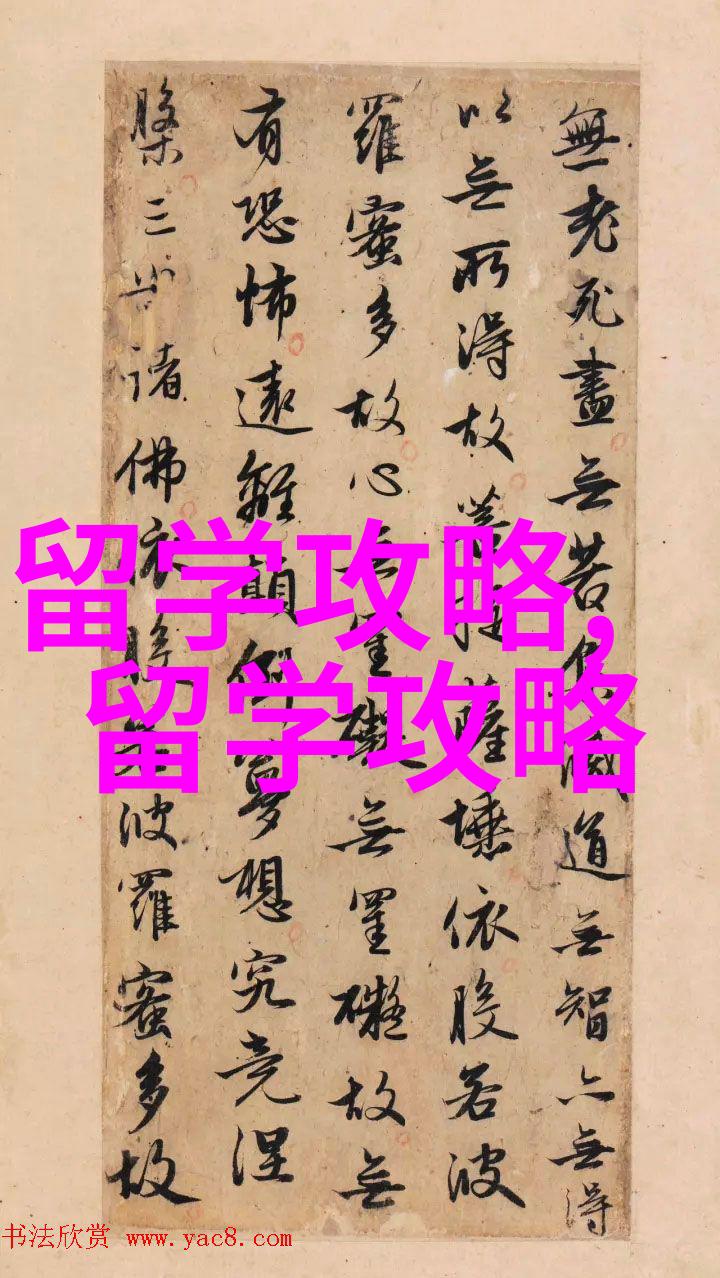 無老死盡无苦集滅道无智亦無得
以无所得故菩提薩埵依般若波
羅蜜多故心无罣礙无罣礙故无
有恐怖遠離顛倒夢想究竟涅
槃三世諸佛依般若波羅蜜多故
留学攻略,
留学攻略
书法欣赏 www.yac8.com